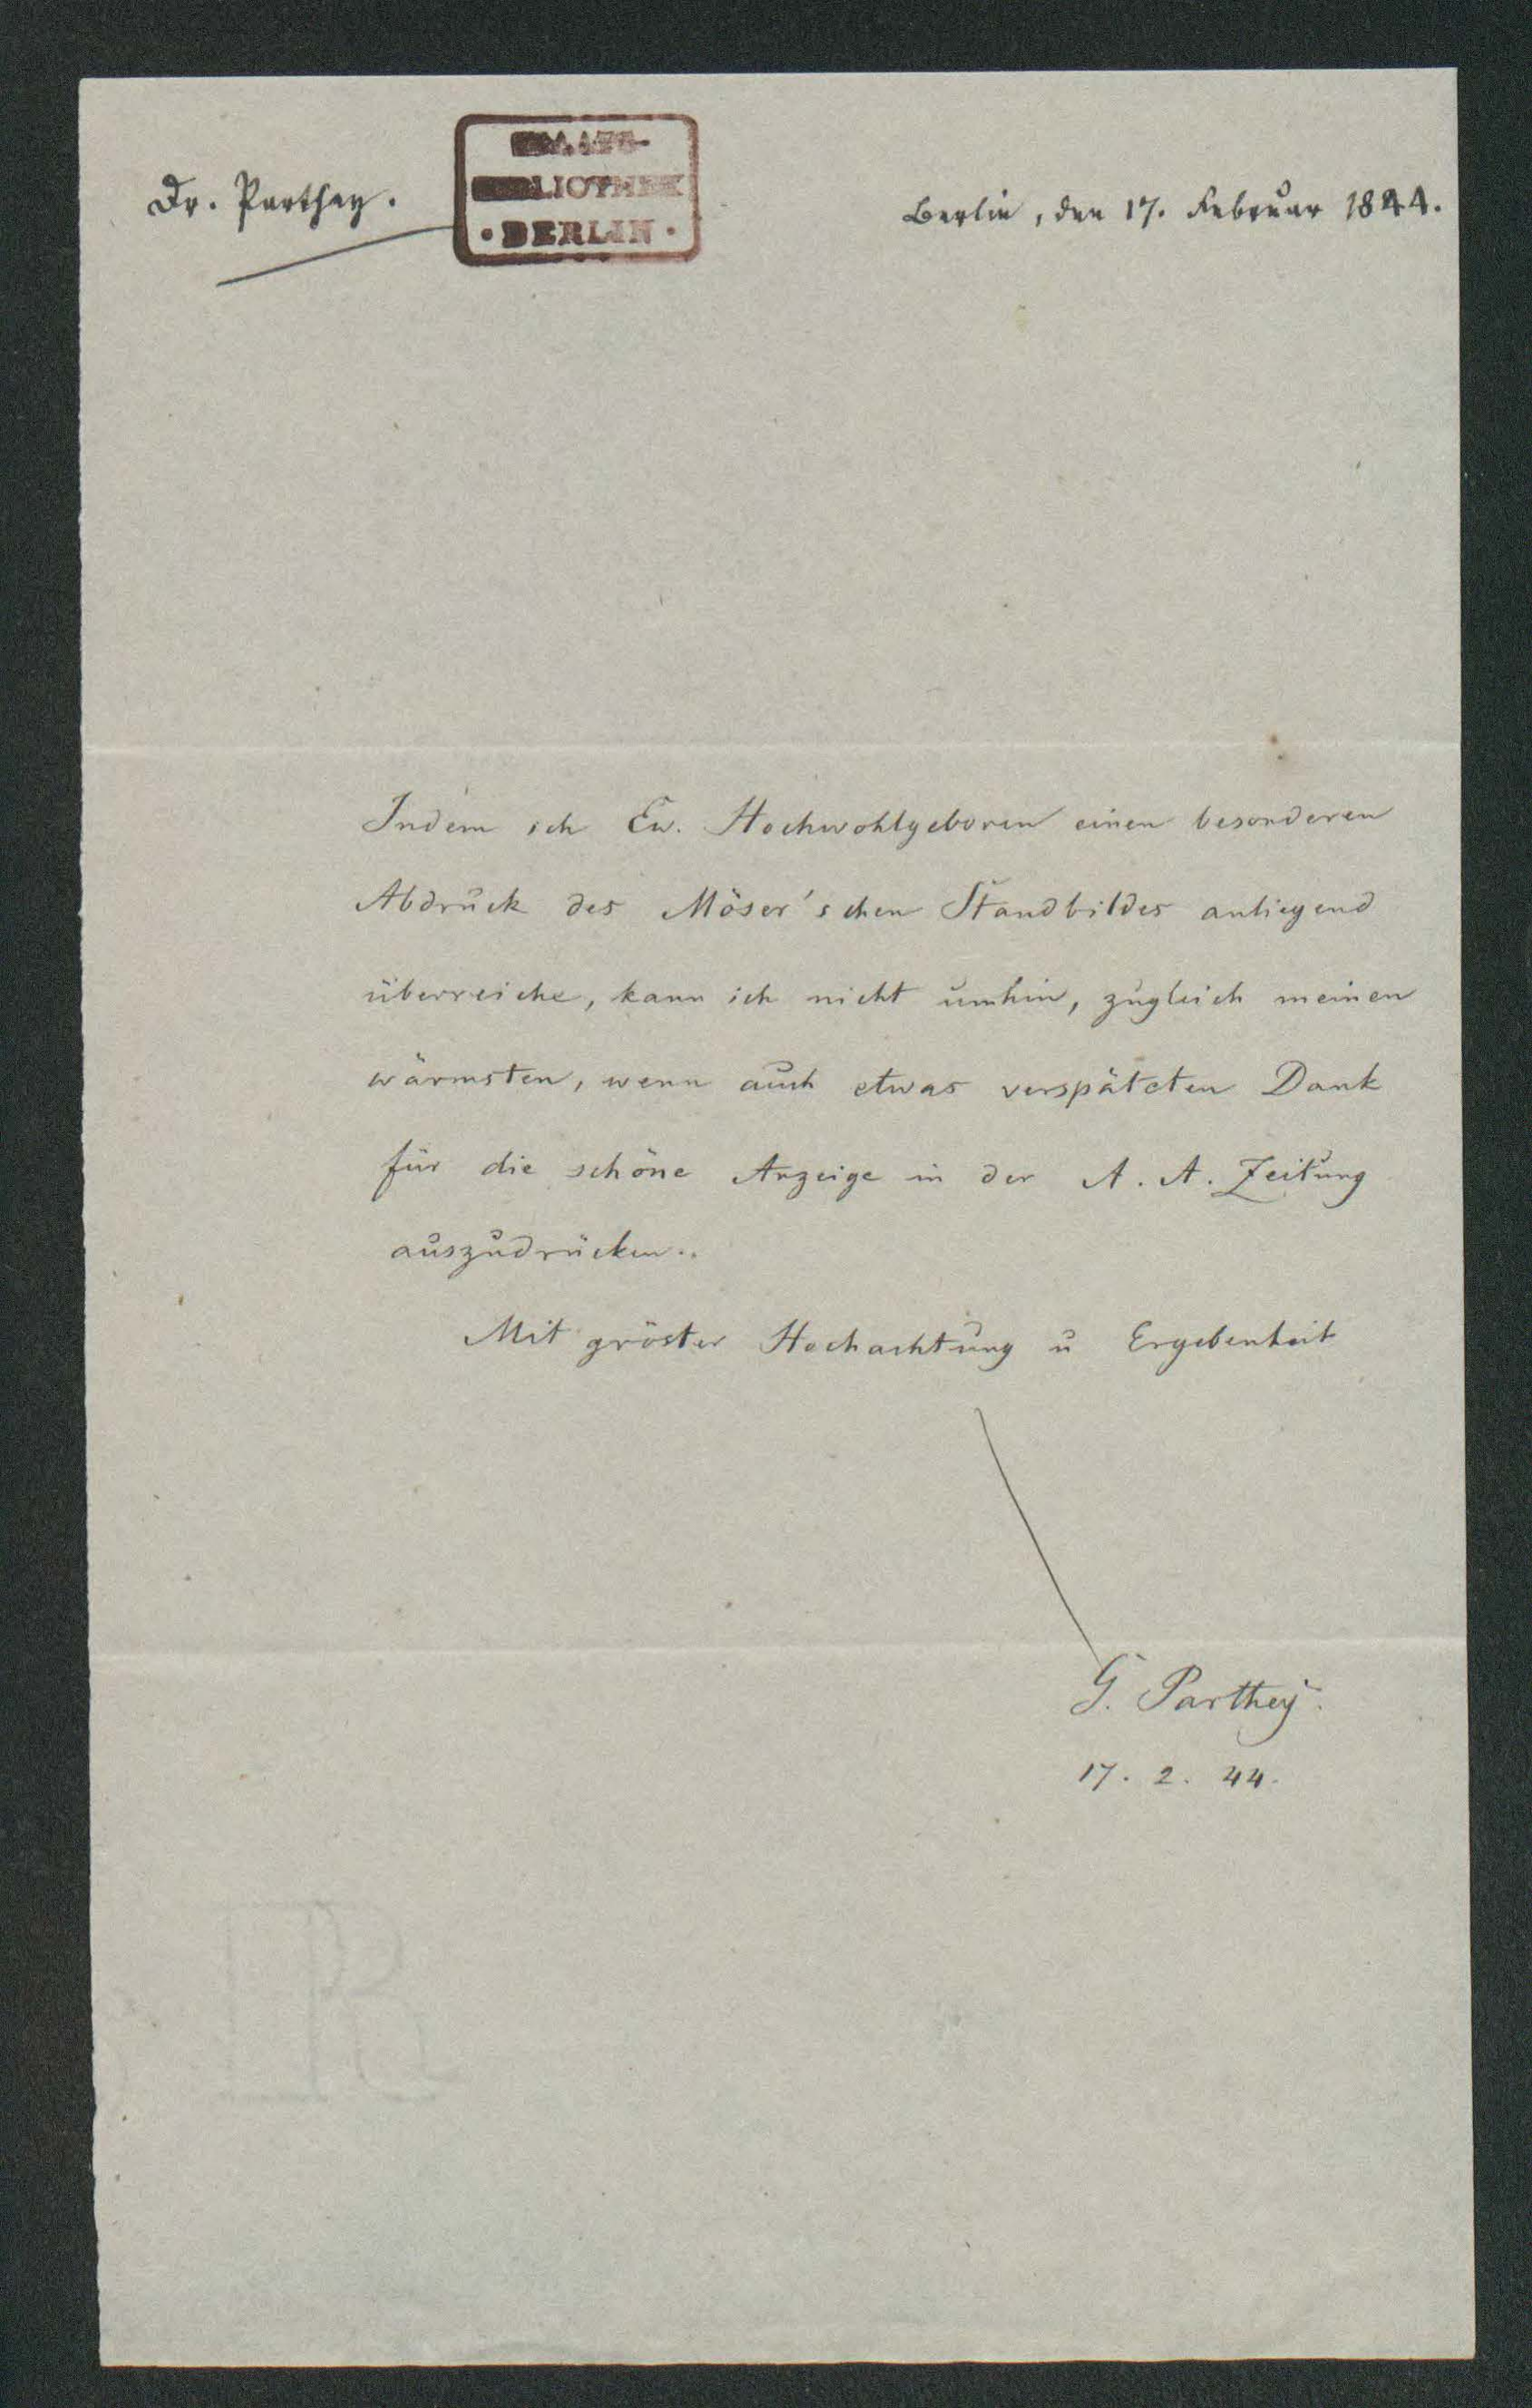 Dr. Parthey.
STAATS-
BIBLIOTHEK
• BERLIN •
Berlin, den 17. Februar 1844.
Indem ich Ew. Hochwohlgeboren einen besonderen
Abdruck des Möser'schen Standbildes anliegend
überreiche, kann ich nicht umhin, zugleich meinen
wärmsten, wenn auch etwas verspäteten Dank
für die schöne Anzeige in der A. A. Zeitung
auszudrücken.
Mit gröster Hochachtung u Ergebenheit
G. Parthey.
17. 2. 44.